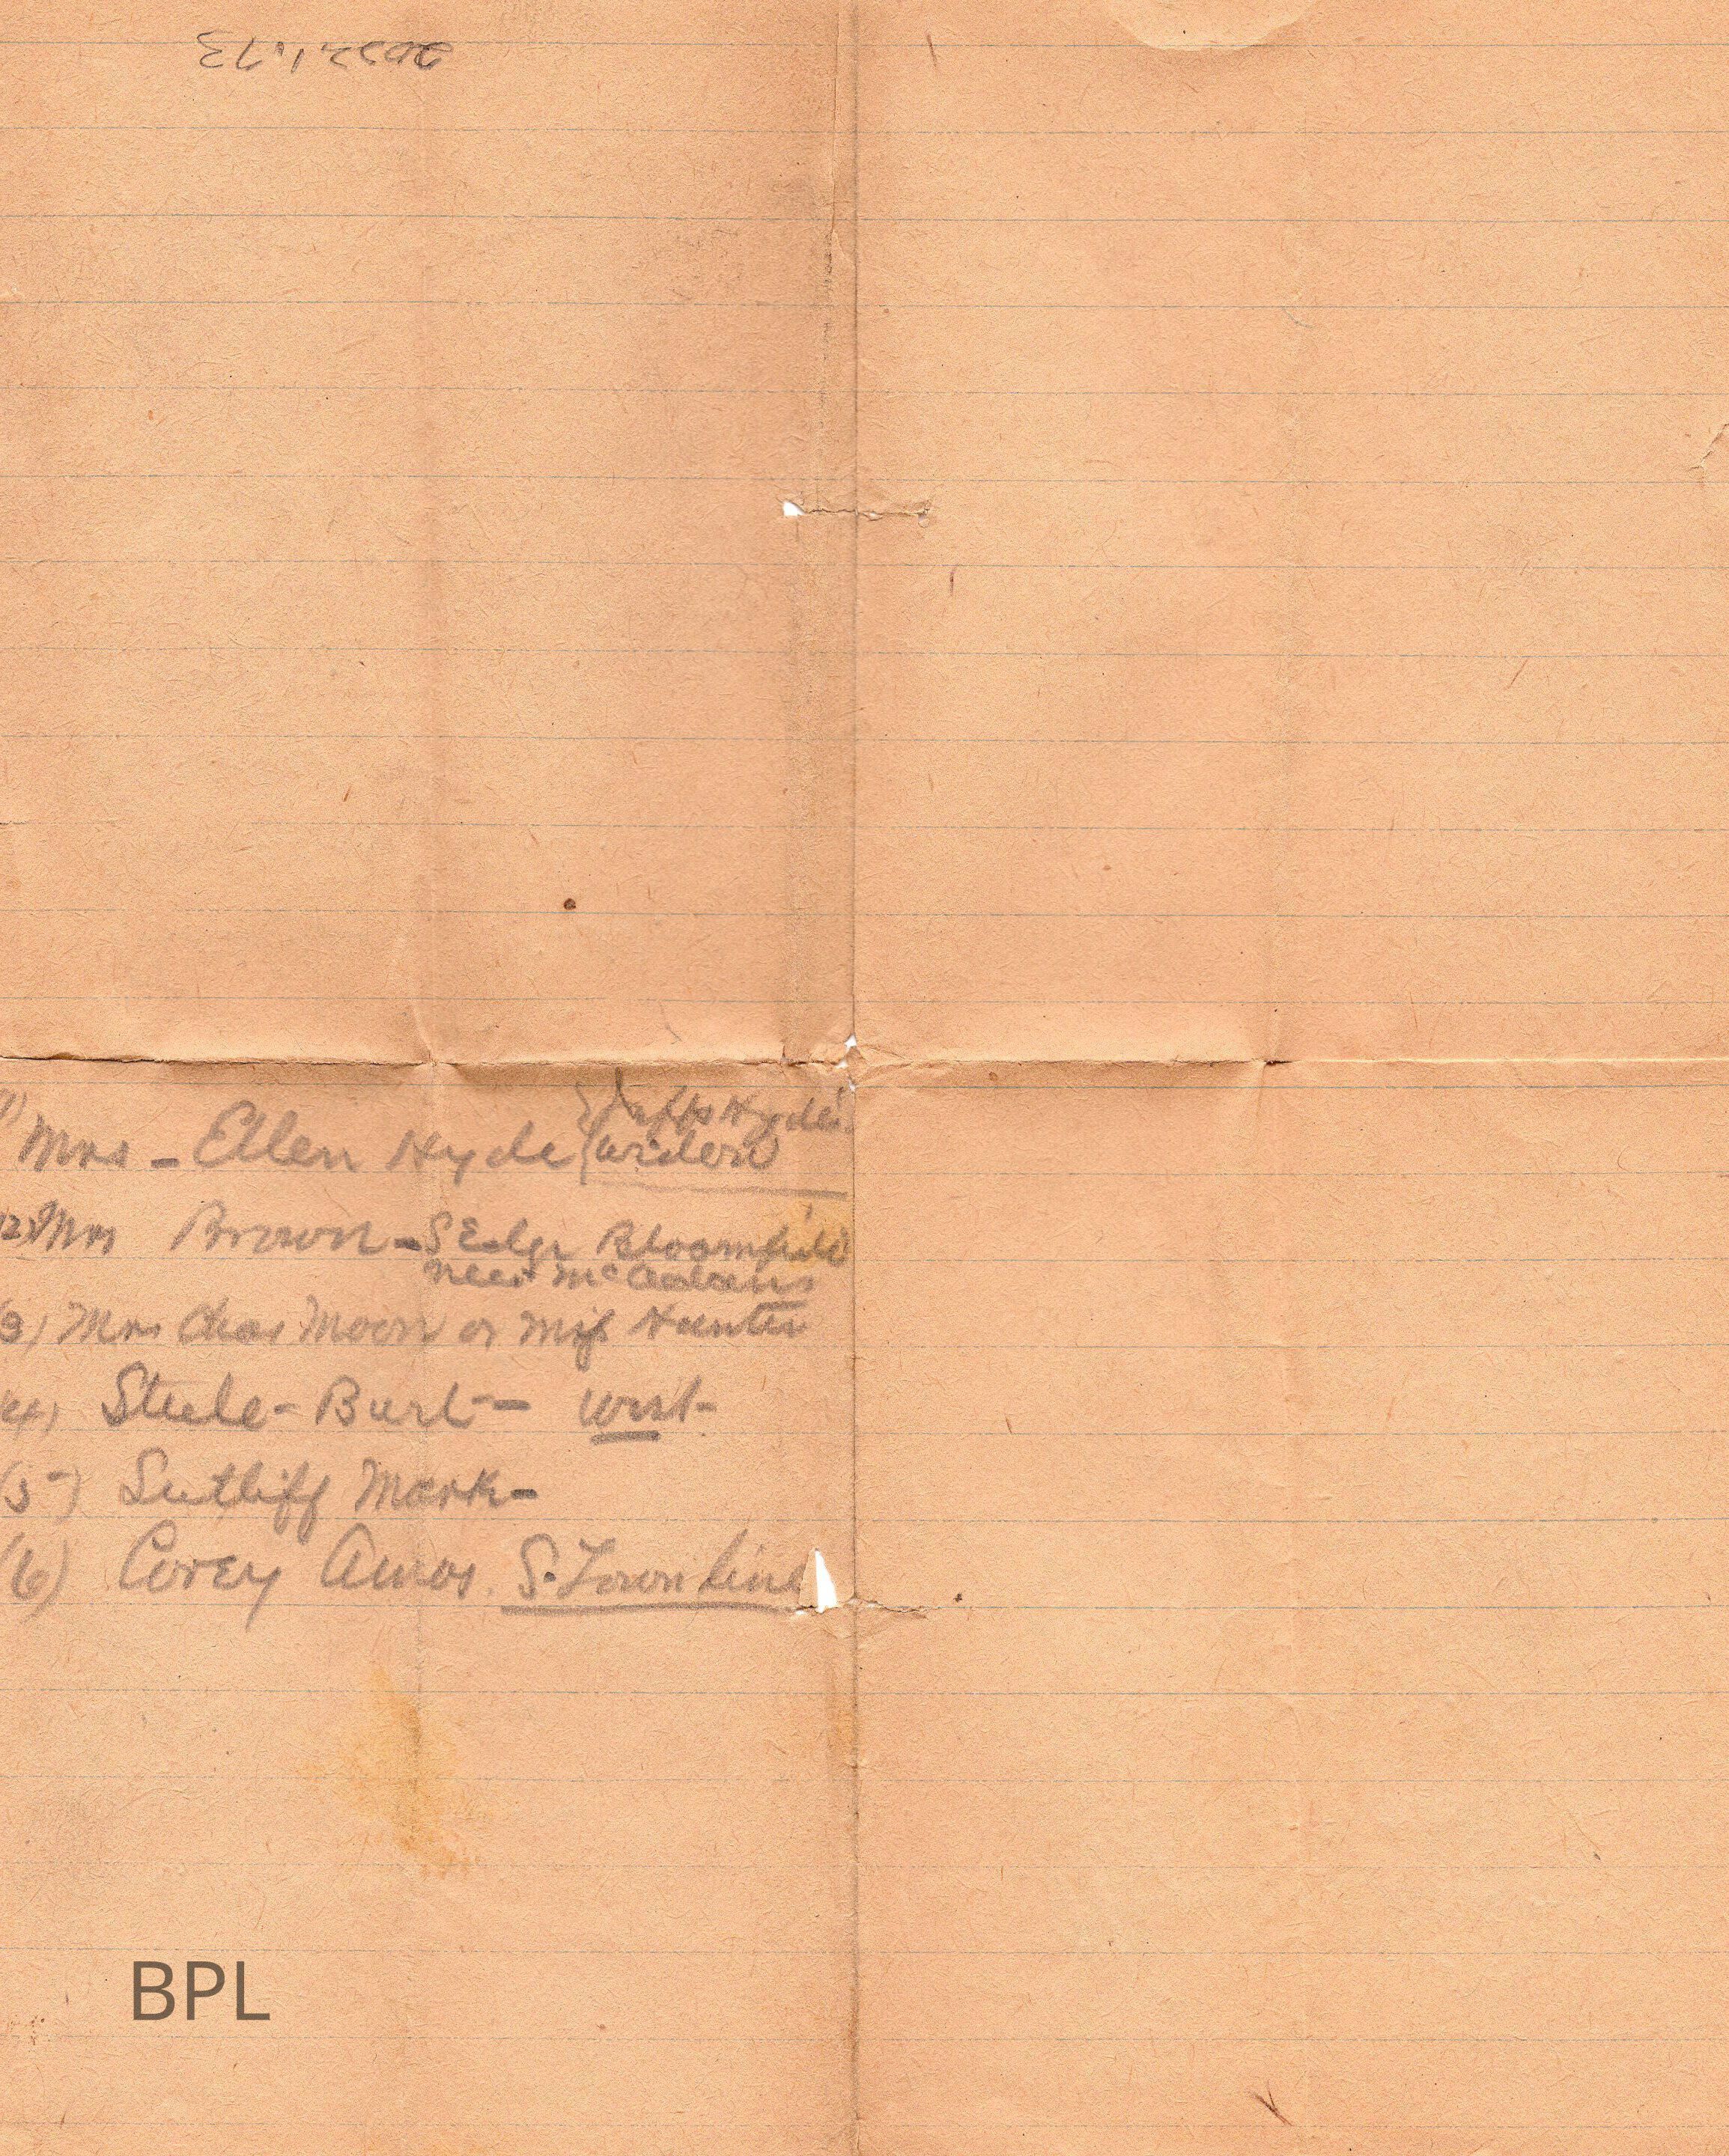 2022.1.73
1) Mrs - Ellen Hyde (Taffs Hydes
widow
(2) Mrs Brown - S Edge Bloomfield
near McAdams
(3) Mrs Chas Moon or Miss Hunter
(4) Steele - Burt - West -
(5) Sutliff Mark -
(6) Corey Amos. S. Town Line
BPL